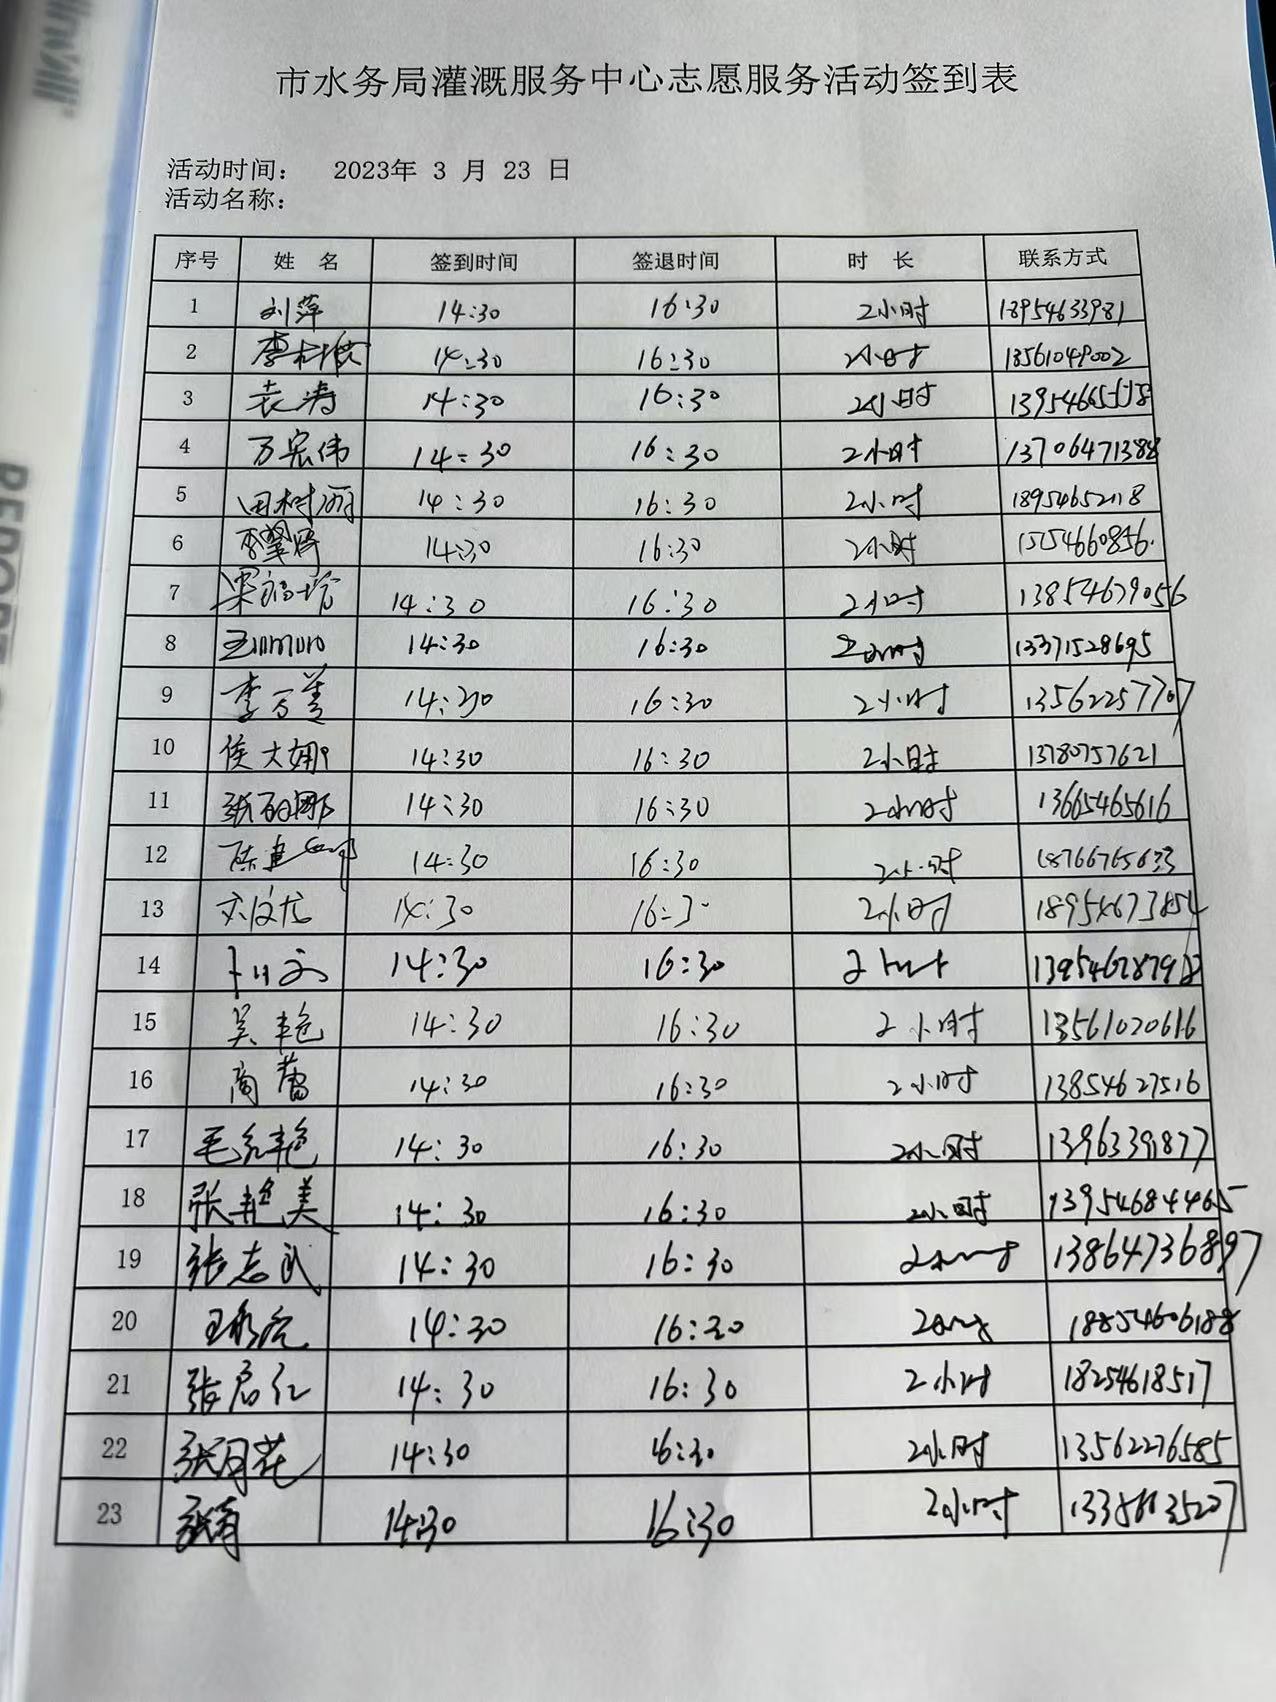 市水务局灌溉服务中心志愿服务活动签到表
活动时间： 2023年 3 月 23 日
活动名称：
序号 姓 名 签到时间 签退时间 时 长 联系方式
1 刘萍 14:30 16:30 2小时 18954633981
2 14:30 16:30 2小时 13561049002
3 袁涛 14:30 16:30 2小时
4 万宏伟 14:30 16:30 2小时 13706471388
5 田树丽 14:30 16:30 2小时 18954652118
6 14:30 16:30 2小时 15154660856
7 14:30 16:30 2小时 13854679056
8 14:30 16:30 2小时 13371528695
9 李万美 14:30 16:30 2小时 13562257707
10 侯大娜 14:30 16:30 2小时 13780757621
11 14:30 16:30 2小时 13665465616
12 14:30 16:30 2小时 18766765633
13 14:30 16:30 2小时 18954673854
14 14:30 16:30 2小时
15 吴艳 14:30 16:30 2小时 13561020616
16 商蕾 14:30 16:30 2小时 13854627516
17 14:30 16:30 2小时 13963391877
18 张艳美 14:30 16:30 2小时 13954684465
19 张志武 14:30 16:30 2小时 13864736897
20 14:30 16:30 2小时 18854606188
21 张启仁 14:30 16:30 2小时 18254618517
22 张月花 14:30 16:30 2小时 13562276585
23 14:30 16:30 2小时